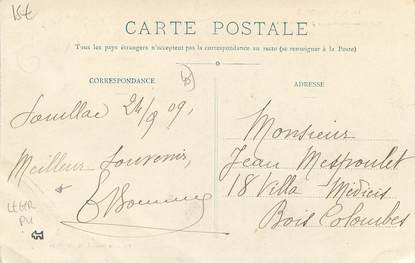 15€
CARTE POSTALE
Tous les pays étrangers n'acceptent pas la correspondance au recto (se renseigner à la Poste)
CORRESPONDANCE
Souillac 24/9 09,
Meilleur souvenir,
LEGER
PU
ADRESSE
Monsieur
Jean Mespoulet
18 Villa Médicis
Bois Colombes